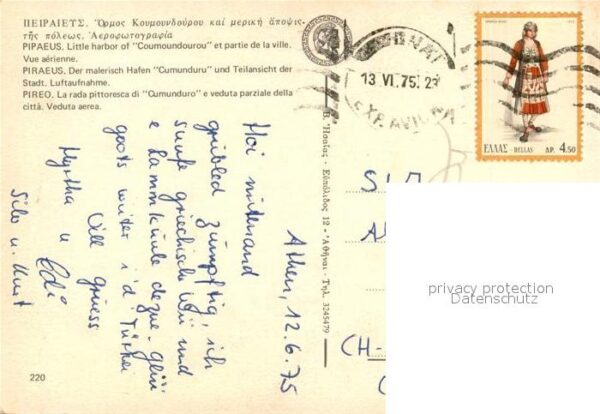 ΠΕΙΡΑΙΕΥΣ. Ὅρμος Κουμουνδούρου καί μερική ἄποψις
τῆς πόλεως. Ἀεροφωτογραφία
PIPAEUS. Little harbor of "Coumoundourou" et partie de la ville.
Vue aérienne.
PIRAEUS. Der malerisch Hafen "Cumunduru" und Teilansicht der
Stadt. Luftaufnahme.
PIREO. La rada pittoresca di "Cumunduro" e veduta parziale della
città. Veduta aerea.
13 VI. 75. 23
ΕΛΛΑΣ - HELLAS ΔΡ. 4.50
Athen, 12.6.75
Hoi mitenand
zümpftig, ich
sunfe griechisch und
e Lammkeule dezue.
goots witer i d'Türkei
Vill grüess
Myrtha u Edi
Silv u. Kurt
Εὐπόλιδος 12 - Ἀθῆναι - Τηλ. 3245479
CH-
220
privacy protection
Datenschutz